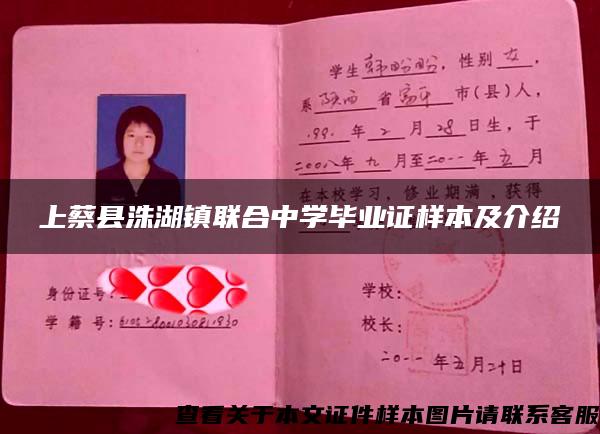 学生韩盼盼，性别女，
系陕西省富平市(县)人，
1991年2月28日生，于
二〇〇八年九月至二〇一一年五月
在本校学习，修业期满，获得
上蔡县洙湖镇联合中学毕业证样本及介绍
身份证号:
学籍号:
学校:
校长:
二〇一一年五月二十日
查看关于本文证件样本图片请联系客服